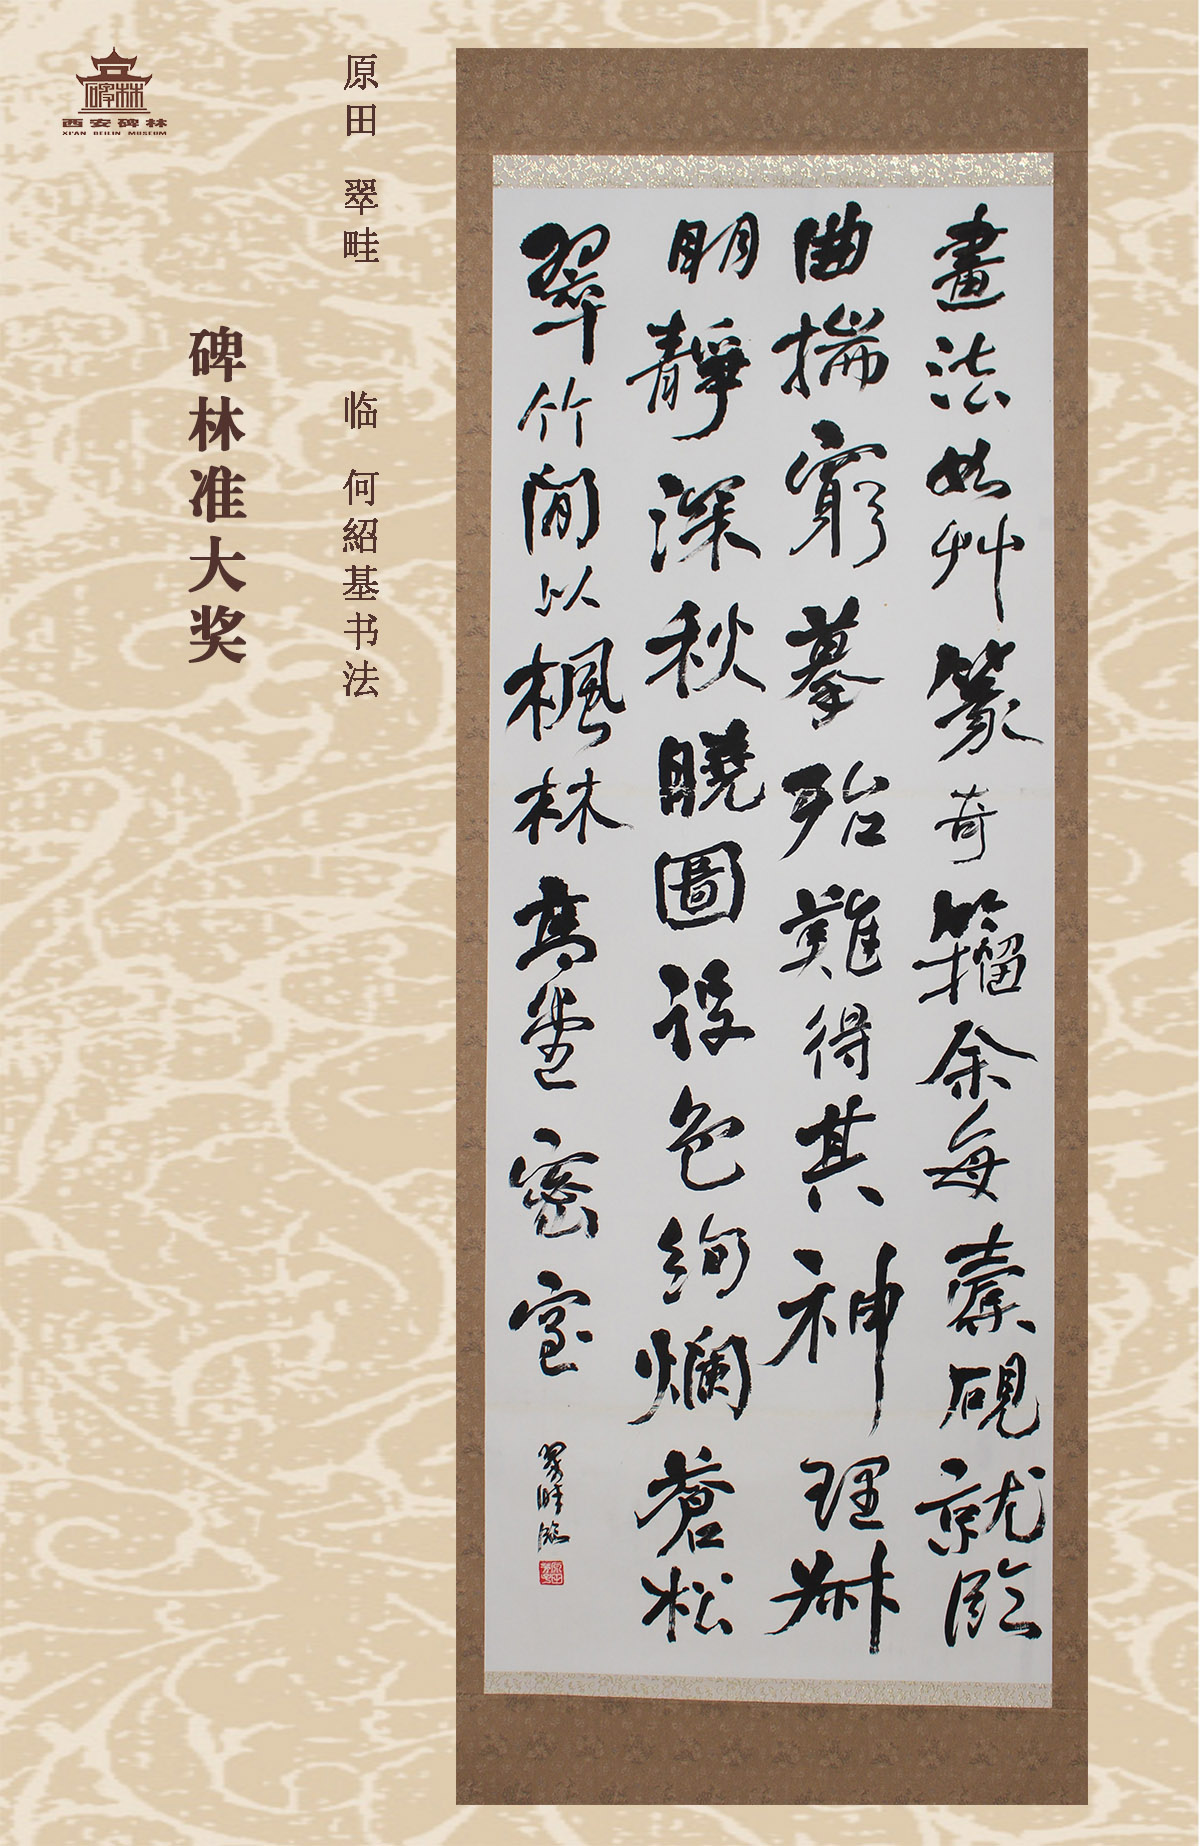 西安碑林
XI'AN BEILIN MUSEUM
原田 翠畦 临 何紹基书法
碑林准大奖
畫法如艸篆奇籀余每橐硯就臨
曲揣窮摹殆難得其神理
明靜深秋曉圖設色絢爛蒼松
翠竹間以楓林高堂密室
翠畦臨